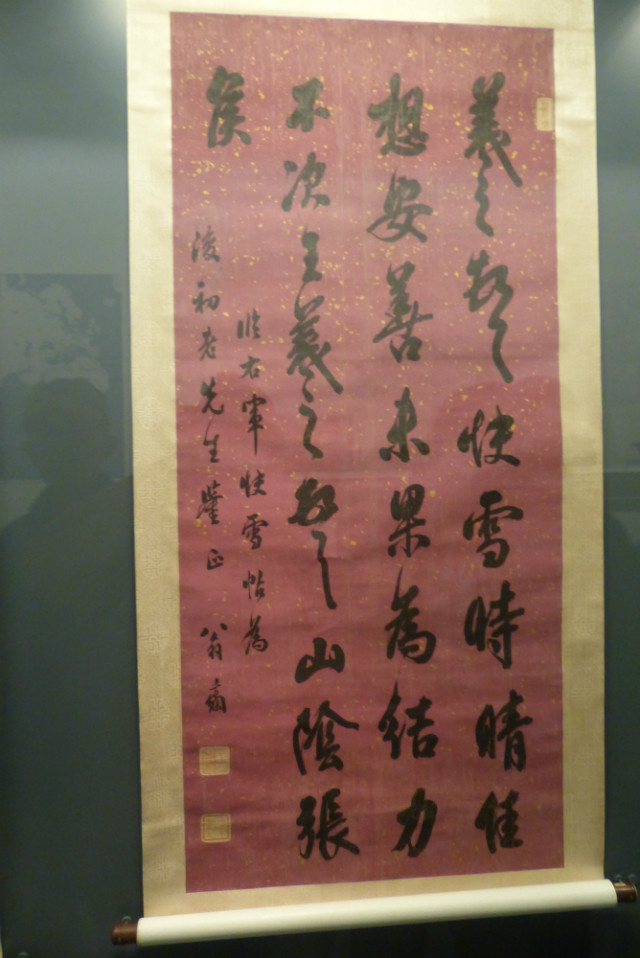 羲之頓首快雪時晴佳
想安善未果為結力
不次王羲之頓首山陰張
侯
臨右軍快雪帖為
初老先生鑒正